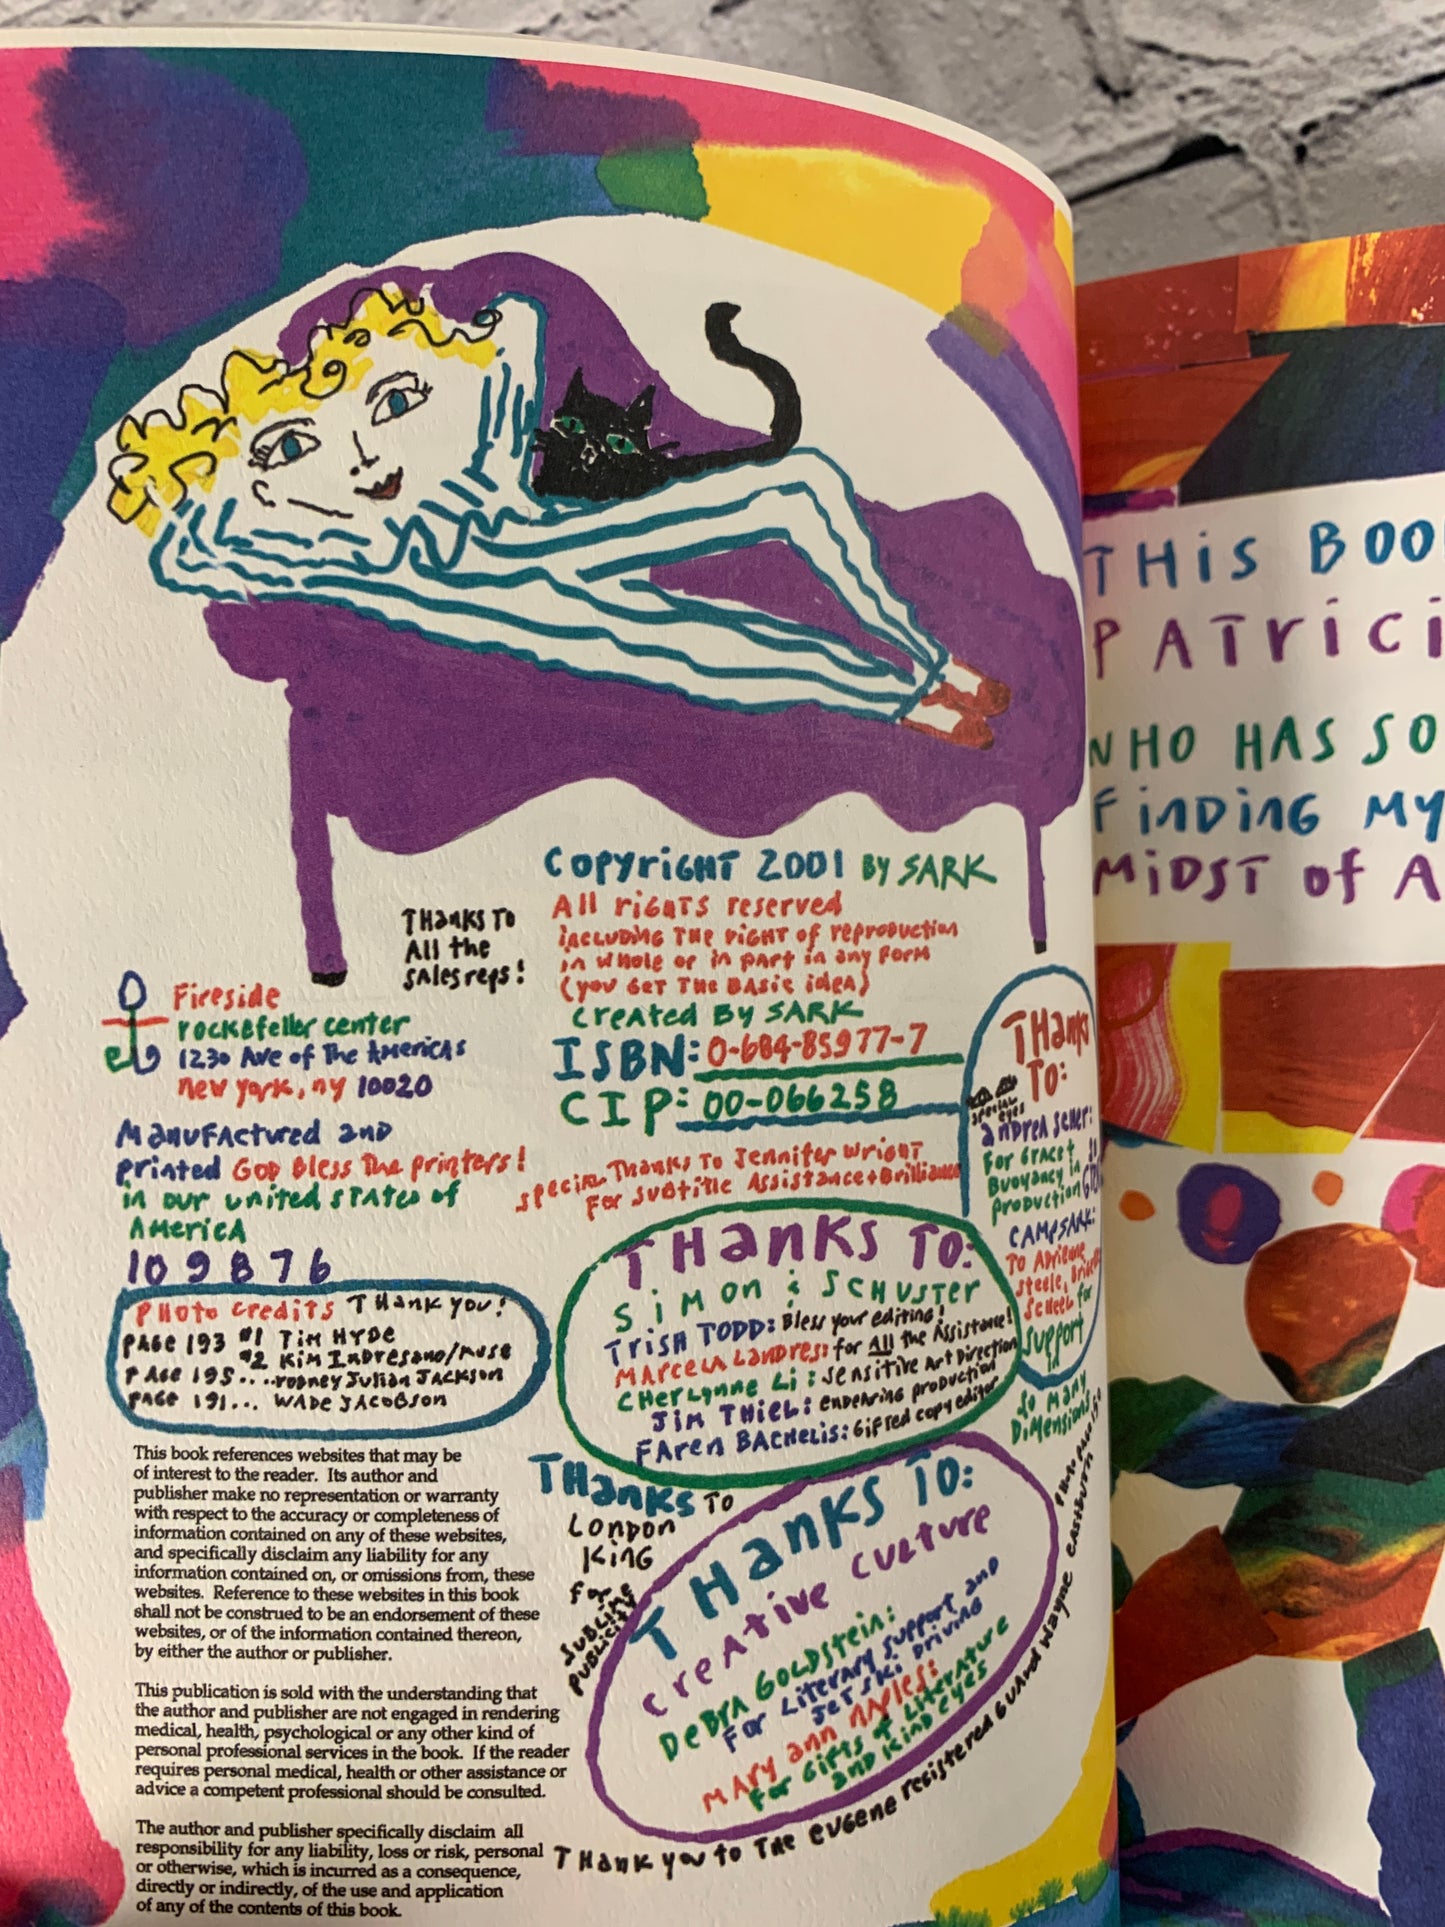 COPYriGHT 2001 BY SARK
All riGHTS reserved
incLUDiNG THE riGHT of reproduction
in WHole or in part in any form
(you GET THE BASic iDEA)
created BY SARK
ISBN: 0-684-85977-7
CIP: 00-066258
special THANKS TO Jennifer WriGHT
For SUBTiTLE Assistance + Brilliance
THANKS TO
All the
sales reps!
Fireside
rockefeller center
1230 Ave of The Americas
New York, NY 10020
Manufactured and
printed GOD Bless The printers!
in our united states of
America
10 9 8 7 6
PHOTO credits THank you!
PAGE 193 #1 TiM HYDE
#2 KiM
PAGE 195.... rodney Julian JACKSON
PAGE 191... WADE JACOBSON
This book references websites that may be
of interest to the reader. Its author and
publisher make no representation or warranty
with respect to the accuracy or completeness of
information contained on any of these websites,
and specifically disclaim any liability for any
information contained on, or omissions from, these
websites. Reference to these websites in this book
shall not be construed to be an endorsement of these
websites, or of the information contained thereon,
by either the author or publisher.
This publication is sold with the understanding that
the author and publisher are not engaged in rendering
medical, health, psychological or any other kind of
personal professional services in the book. If the reader
requires personal medical, health or other assistance or
advice a competent professional should be consulted.
The author and publisher specifically disclaim all
responsibility for any liability, loss or risk, personal
or otherwise, which is incurred as a consequence,
directly or indirectly, of the use and application
of any of the contents of this book.
THANKS TO:
SiMON & SCHUSTER
TRISH TODD: Bless your editing!
MARCELA LANDRES: for All the Assistance!
CHERLYNNE Li: sensitive Art Direction
JiM THiEL: ENDEARING production
FAREN BACHELIS: Gifted copy editor
THANKS TO
LONDON
KiNG
for
SUBLIME
PUBLiCiTY
THANKS TO:
creative CULTURE
DEBRA GOLDSTEIN:
For Literary support and
JET SKi DRiViNG
MARY ANN NAPLES:
For Gifts of LiterATURE
and KIND EYES
THANK you to THE EUGENE registered GUARD Wayne EASTBURN
THANKS
TO:
special
eyes
For GrACE +
Buoyancy in
production
CAMP SARK:
To Adrienne
steele,
for
support
in
so many
Dimensions
THiS BOO
PATriCi
WHO HAS SO
FiNDiNG MY
MiDST of A